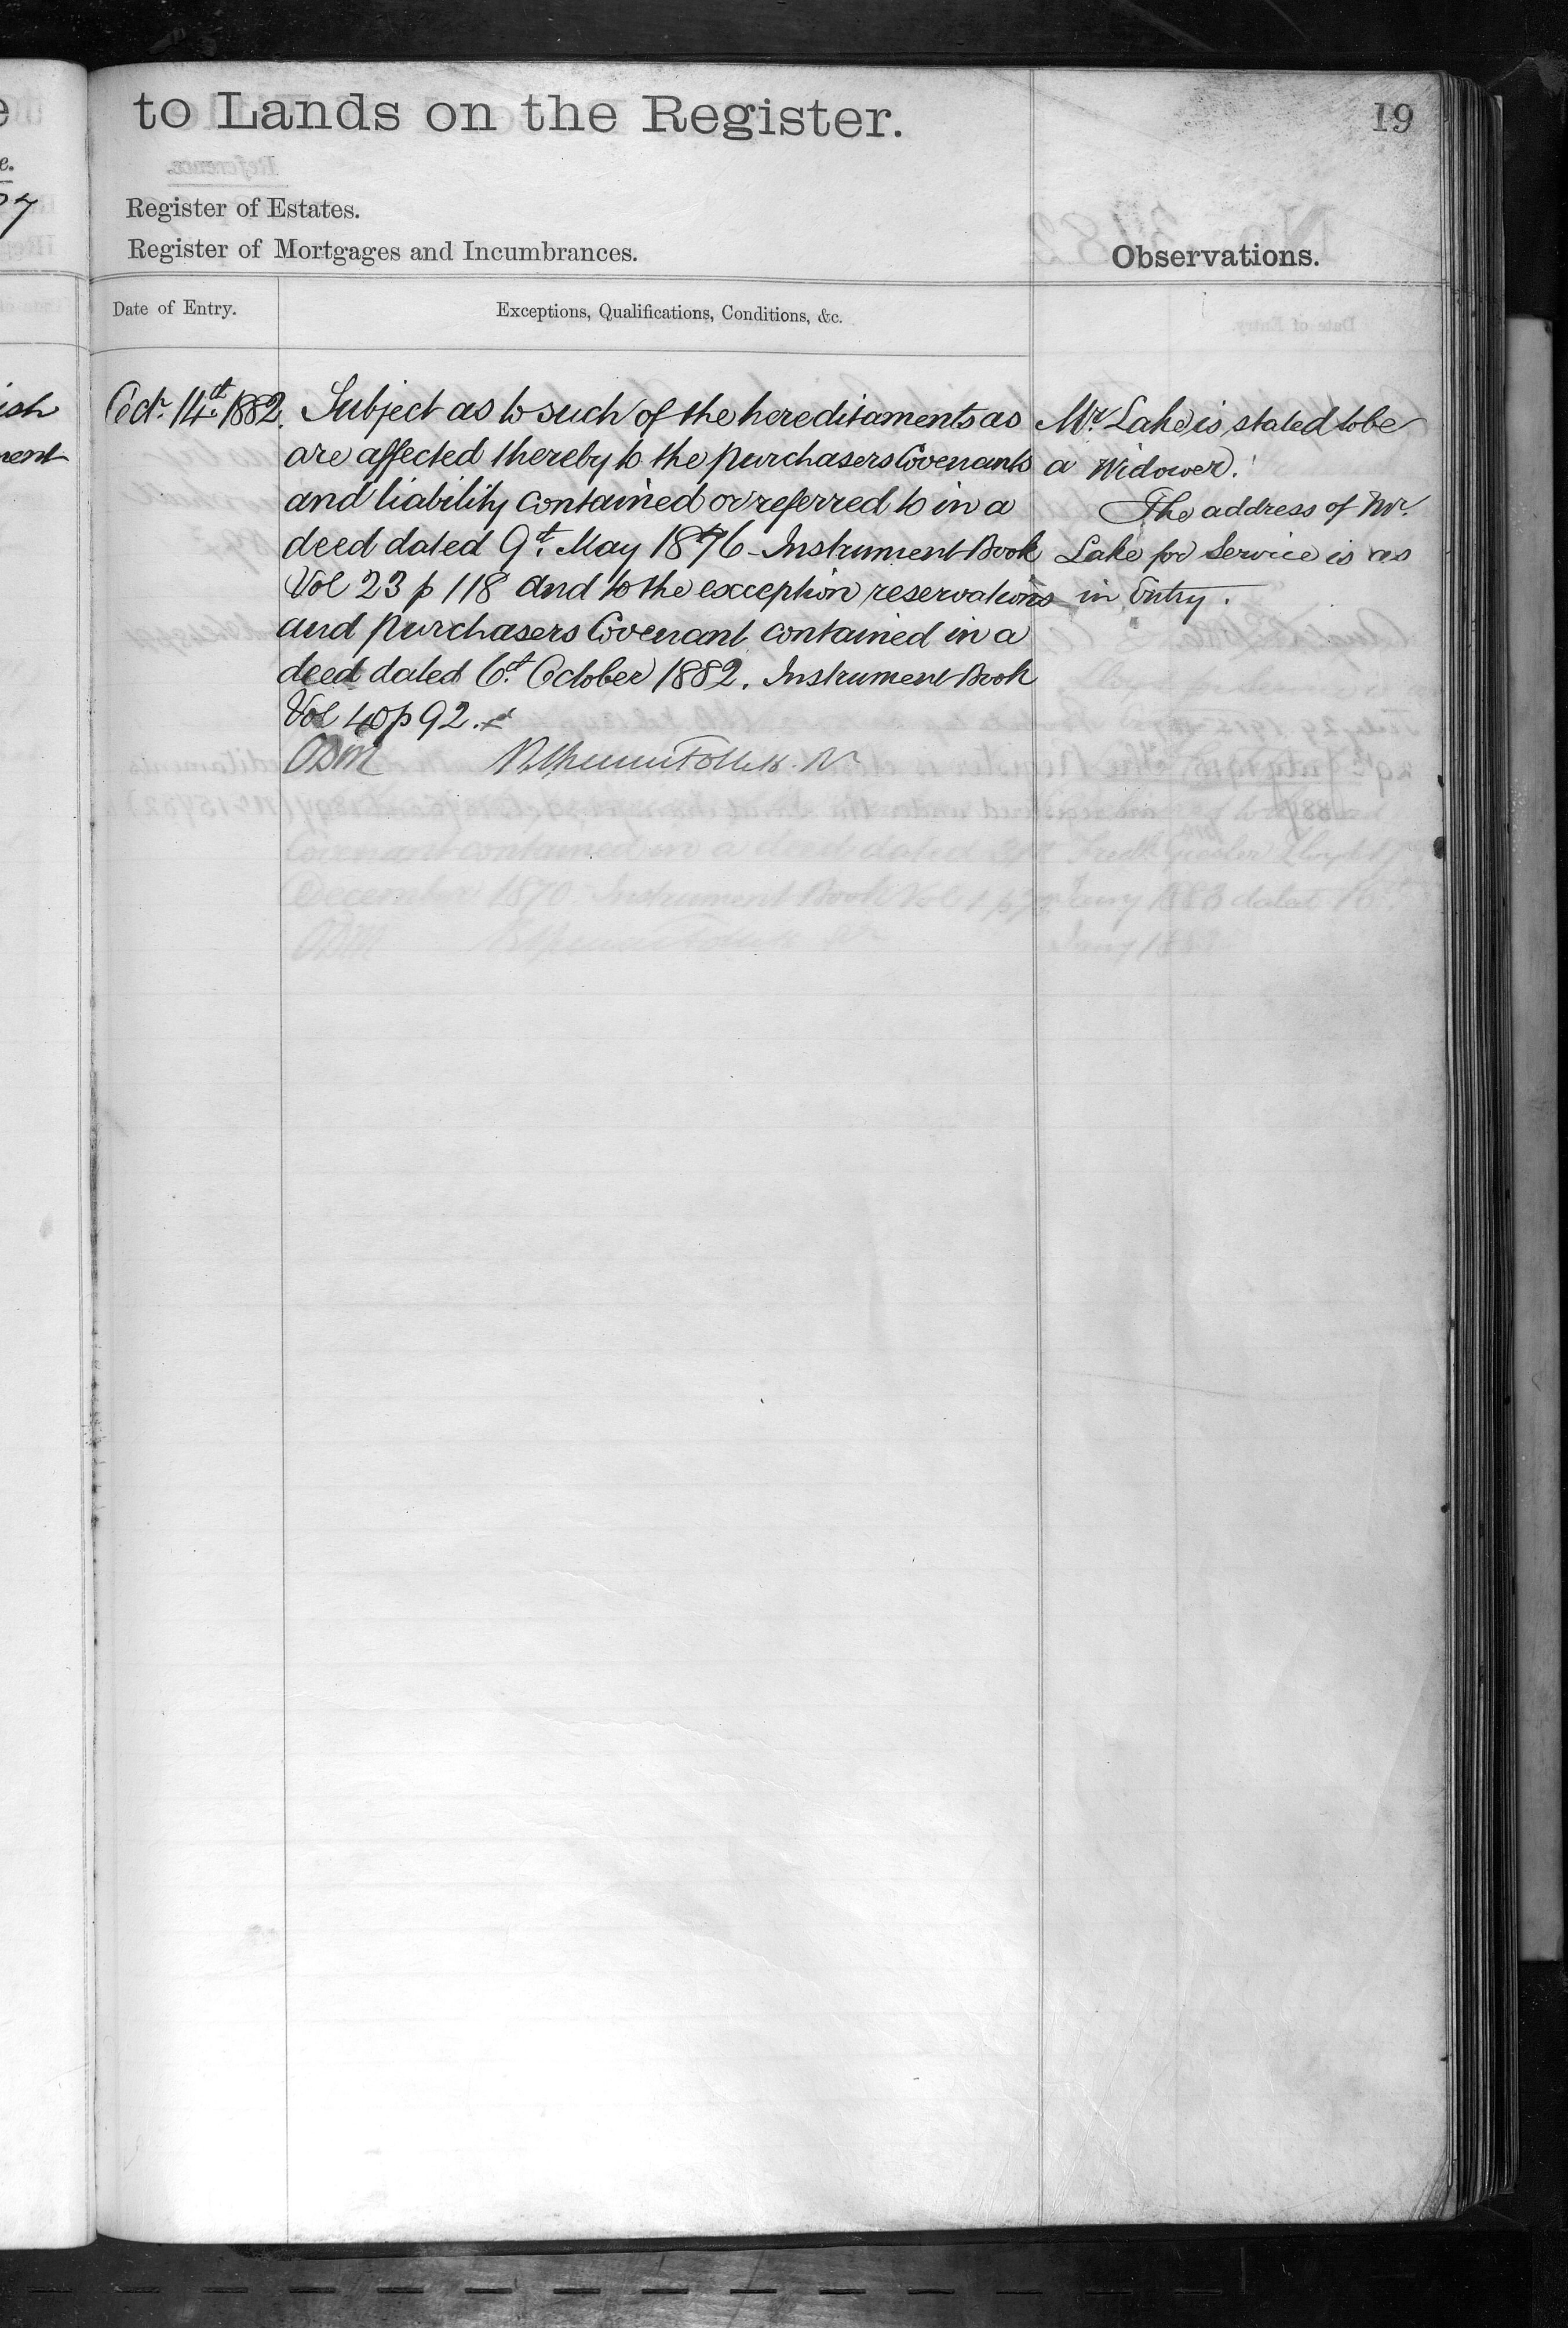 to Lands on the Register.
19
Register of Estates.
Register of Mortgages and Incumbrances.
Observations.
Date of Entry.
Exceptions, Qualifications, Conditions, &c.
Octr. 14th. 1882.
Subject as to such of the hereditaments as
are affected thereby to the purchasers Covenants
and liability contained or referred to in a
deed dated 9th. May 1876 - Instrument Book
Vol 23 p 118 and to the exception reservations
and purchasers Covenant contained in a
deed dated 6th. October 1882. Instrument Book
Vol 40 p 92.
Mr. Lake is stated to be
a Widower.
The address of Mr.
Lake for Service is as
in Entry.
Covenant contained in a deed dated
December 1870. Instrument Book Vol 1